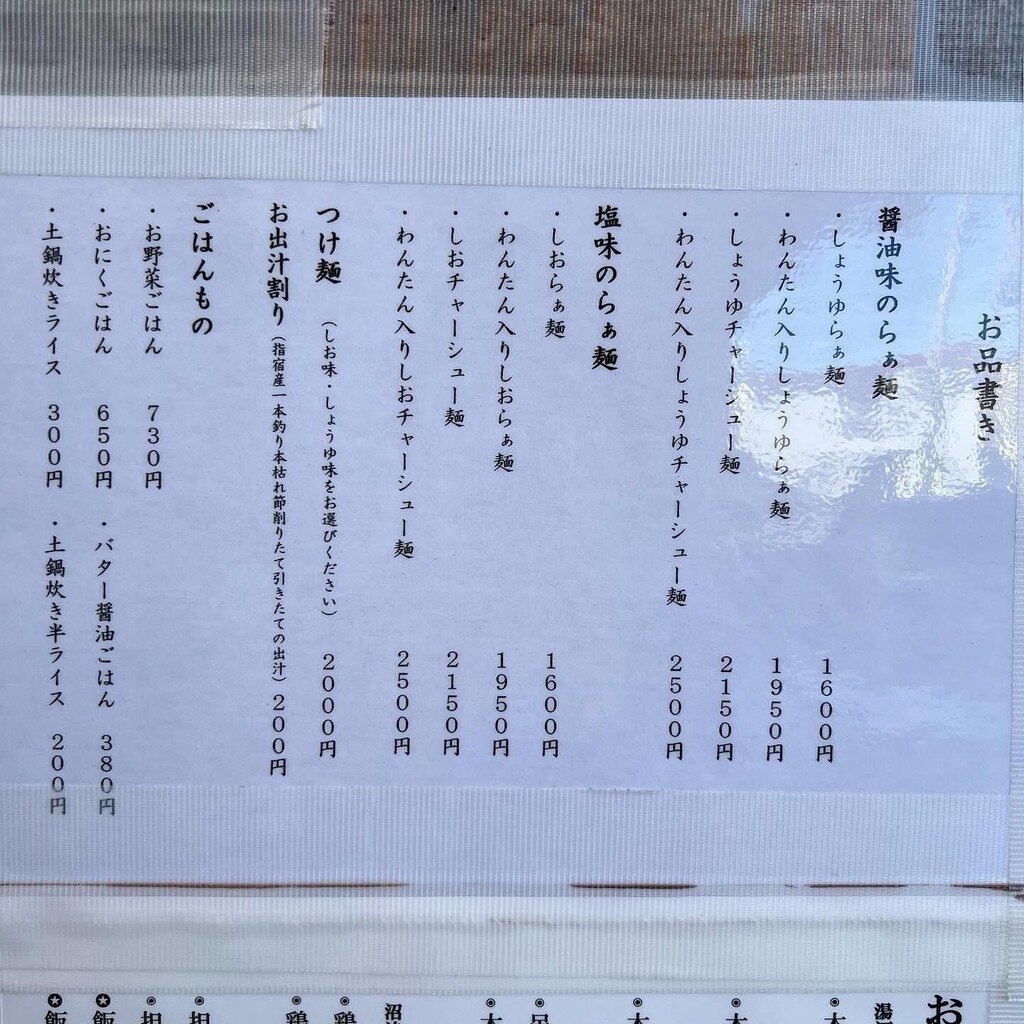 お品書き
醤油味のらぁ麺
・しょうゆらぁ麺 1600円
・わんたん入りしょうゆらぁ麺 1950円
・しょうゆチャーシュー麺 2150円
・わんたん入りしょうゆチャーシュー麺 2500円
塩味のらぁ麺
・しおらぁ麺 1600円
・わんたん入りしおらぁ麺 1950円
・しおチャーシュー麺 2150円
・わんたん入りしおチャーシュー麺 2500円
つけ麺 (しお味・しょうゆ味をお選びください) 2000円
お出汁割り (指宿産一本釣り本枯れ節削りたて引きたての出汁) 200円
ごはんもの
・お野菜ごはん 730円
・おにくごはん 650円 ・バター醤油ごはん 380円
・土鍋炊きライス 300円 ・土鍋炊き半ライス 200円
お
湯